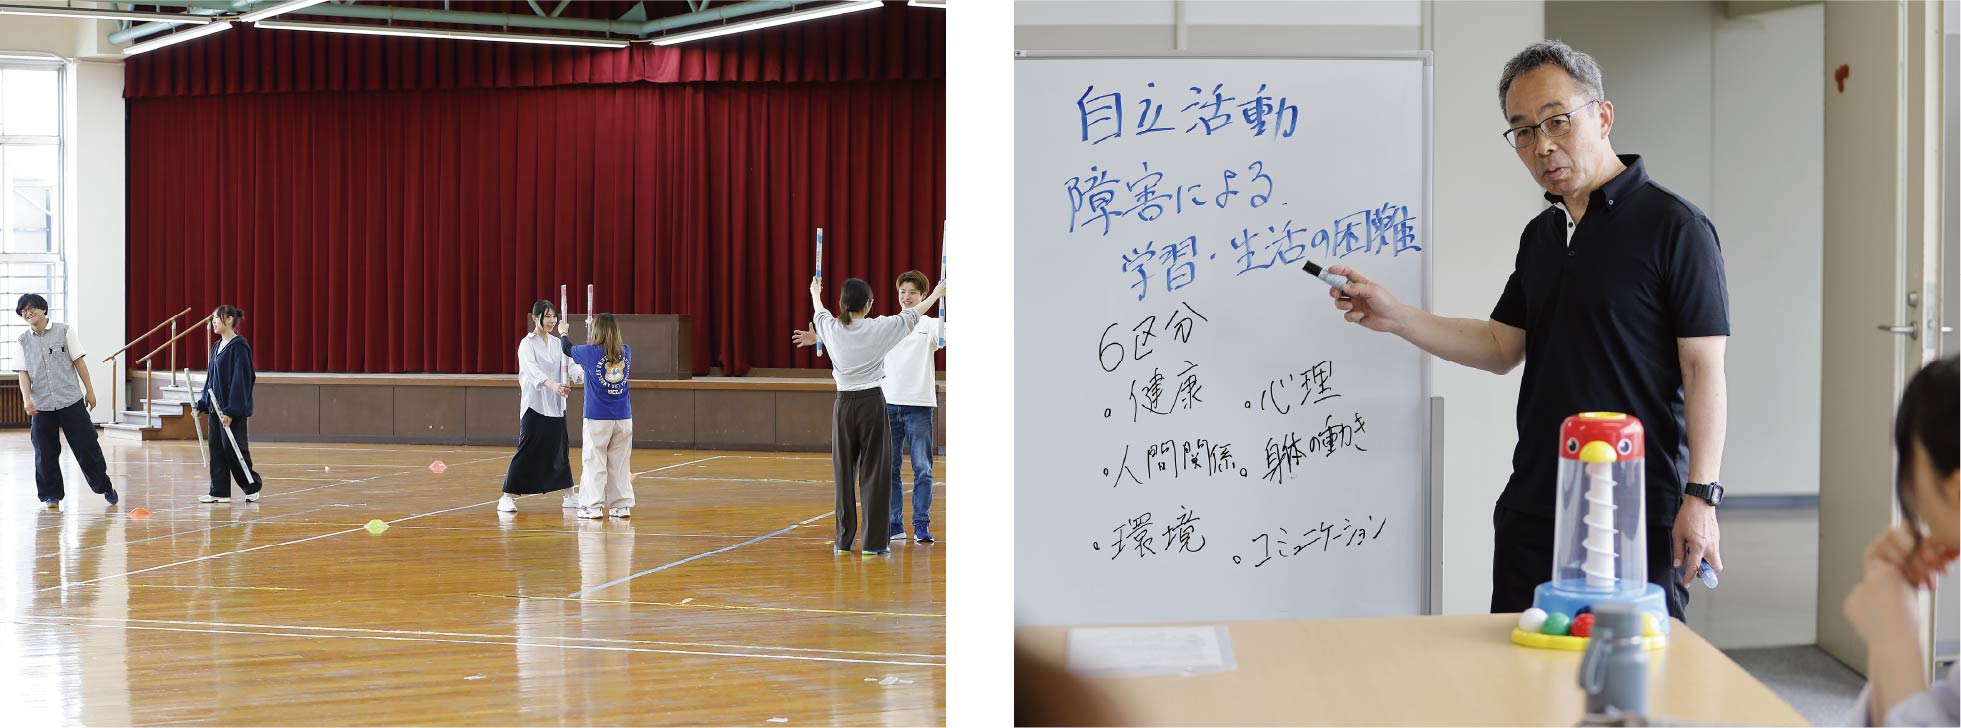 自立活動
障害による
学習・生活の困難
6区分
。健康 。心理
。人間関係 。身体の動き
。環境 。コミュニケーション